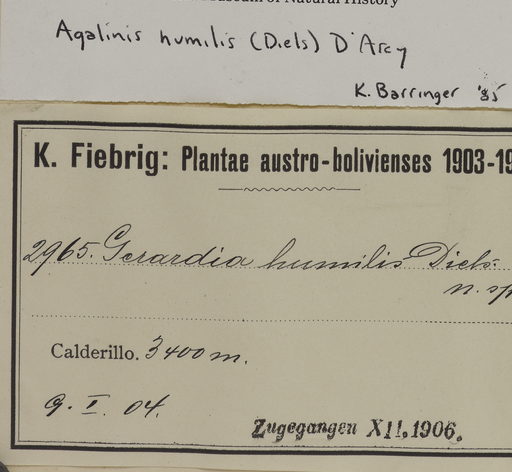 Museum of Natural History
Agalinis humilis (Diels) D'Arcy
K. Barringer '85
K. Fiebrig: Plantae austro-bolivienses 1903-19
2965. Gerardia humilis Diels.
n. sp
Calderillo. 3400 m.
9. I. 04.
Zugegangen XII. 1906.